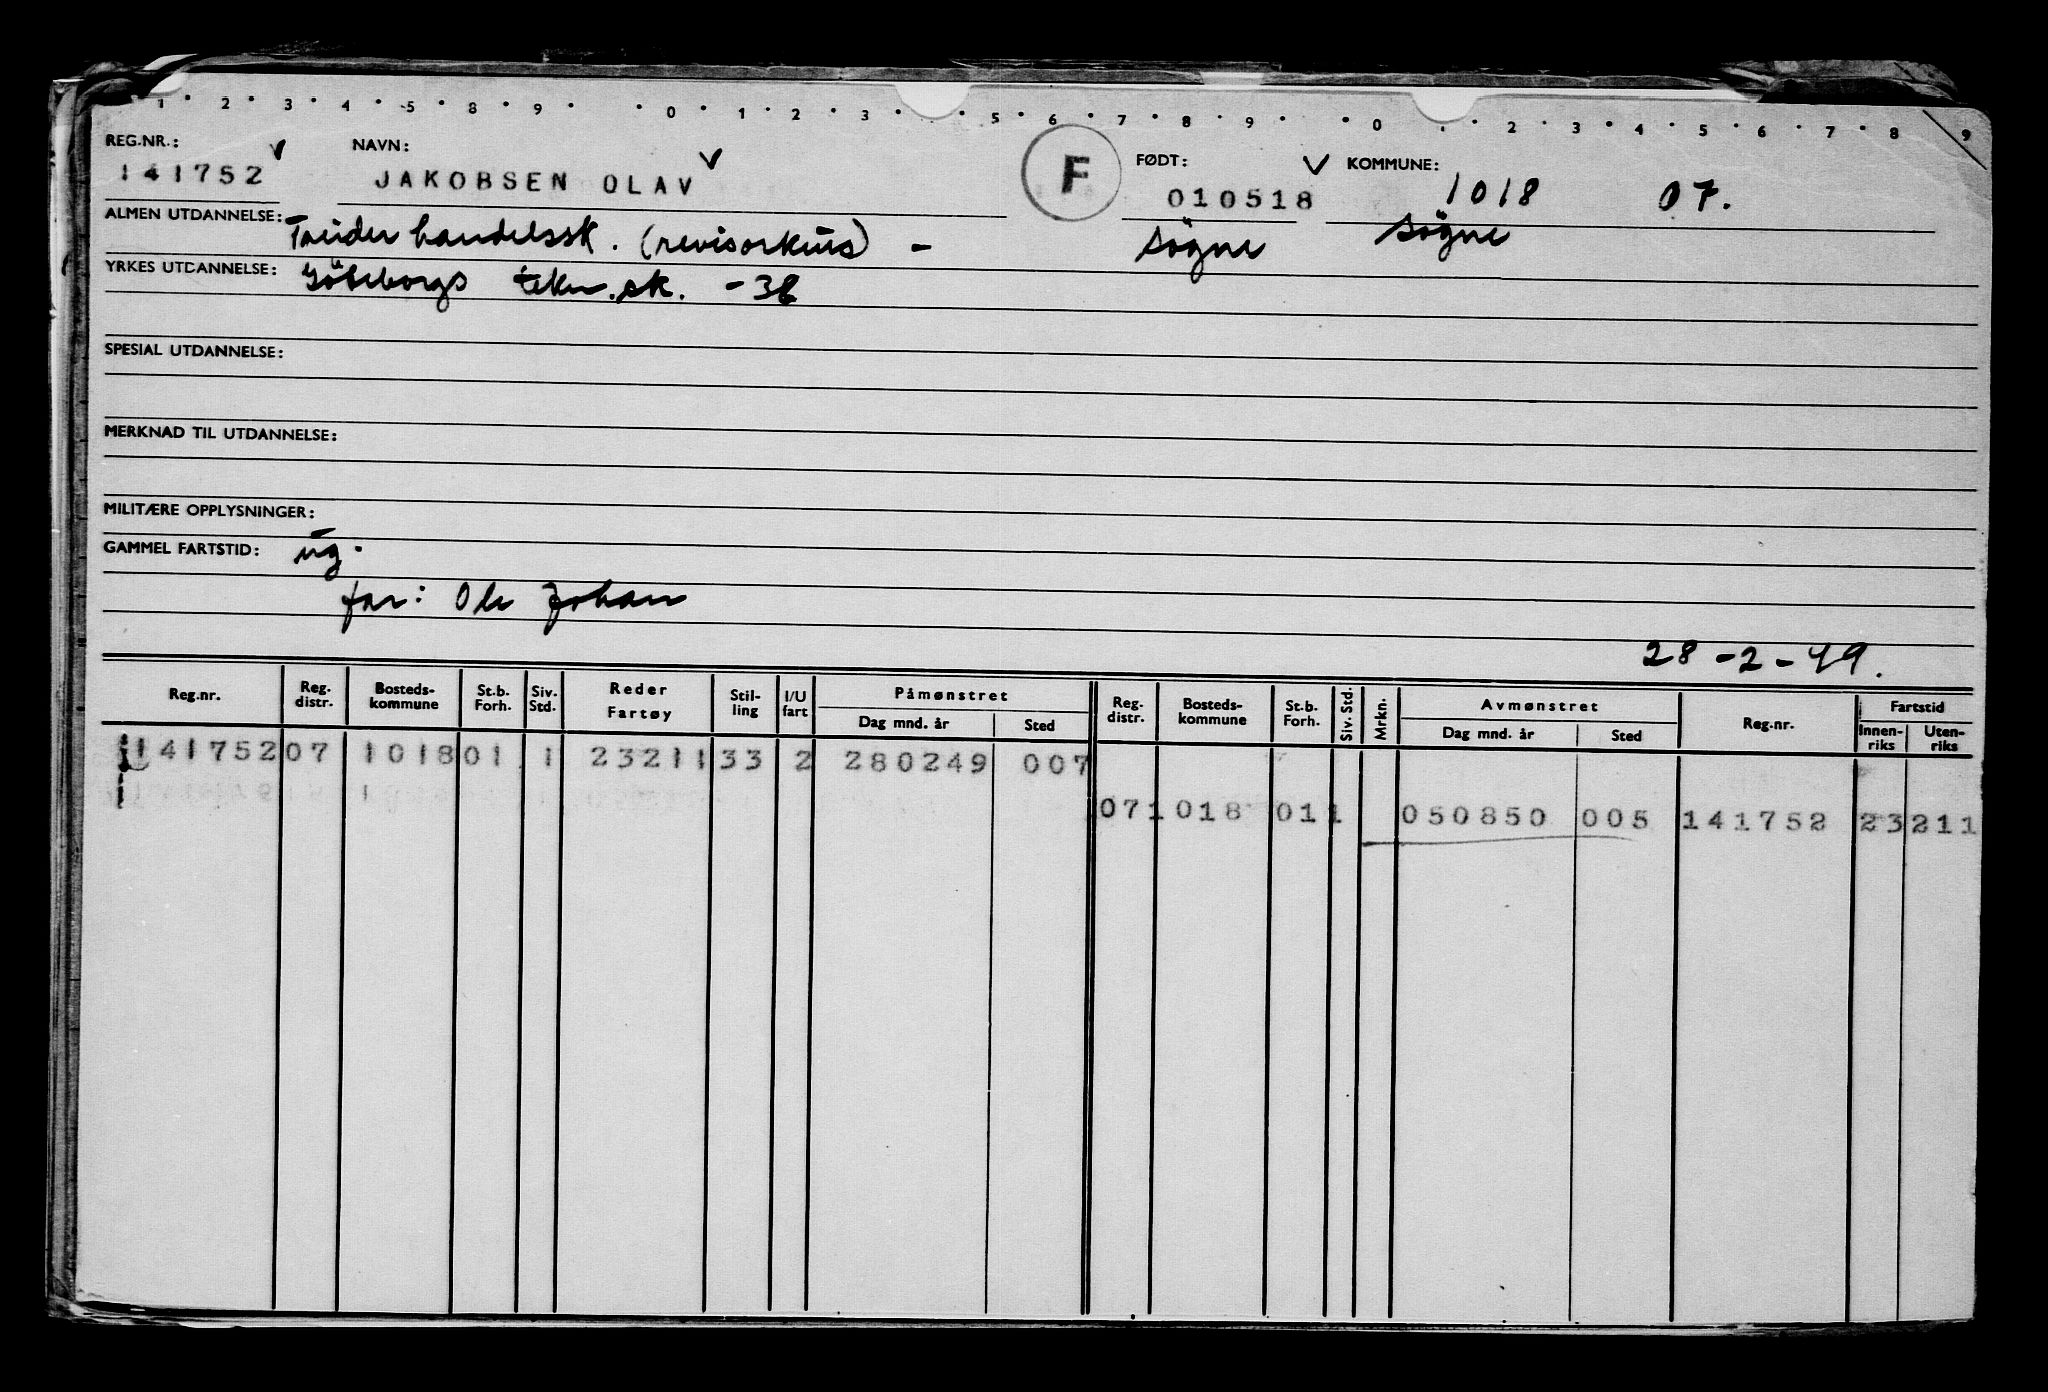 1 • 2 • 3 • 4 • 5 • 8 • 9 • • 0 • 1 • 2 • 3 • • 5 • 6 • 7 • 8 • 9 • • 0 • 2 • 3 • 4 • 5 • 6 • 7 • 8 9
REG.NR.: NAVN: F FØDT: KOMMUNE:
141752 JAKOBSEN OLAV 010518 1018 07.
ALMEN UTDANNELSE: handelssk. (revisorkurs) - Søgne Søgne
YRKES UTDANNELSE: Göteborgs tekn. sk. - 38
SPESIAL UTDANNELSE:
MERKNAD TIL UTDANNELSE:
MILITÆRE OPPLYSNINGER:
GAMMEL FARTSTID: ug.
far: Ole Johan
28-2-49.
Reg.nr. Reg. distr. Bosteds-kommune St.b. Forh. Siv. Std. Reder Fartøy Stil-ling I/U fart Påmønstret Dag mnd. år Sted Reg. distr. Bosteds-kommune St.b. Forh. Siv. Std. Mrkn. Avmønstret Dag mnd. år Sted Reg.nr. Fartstid Innen-riks Uten-riks
141752 07 1018 01 1 23211 33 2 280249 007
07 1018 01 1 050850 005 141752 23 211